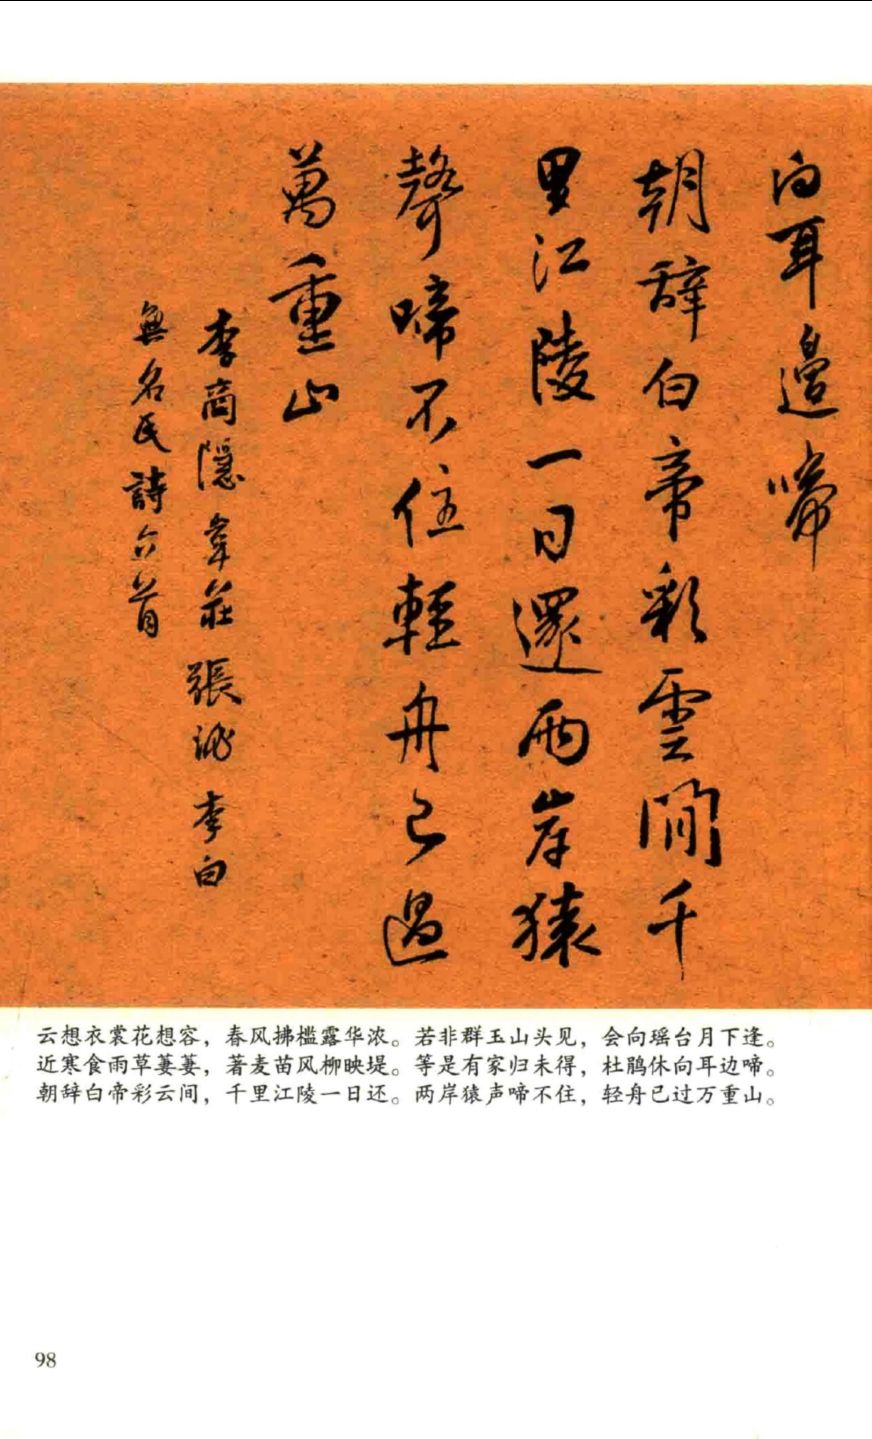 向耳邊啼
朝辞白帝彩雲間千
里江陵一日還兩岸猿
聲啼不住輕舟已過
萬重山
李商隱韋莊張泌李白
無名氏詩六首
云想衣裳花想容，春风拂槛露华浓。若非群玉山头见，会向瑶台月下逢。
近寒食雨草萋萋，著麦苗风柳映堤。等是有家归未得，杜鹃休向耳边啼。
朝辞白帝彩云间，千里江陵一日还。两岸猿声啼不住，轻舟已过万重山。
98